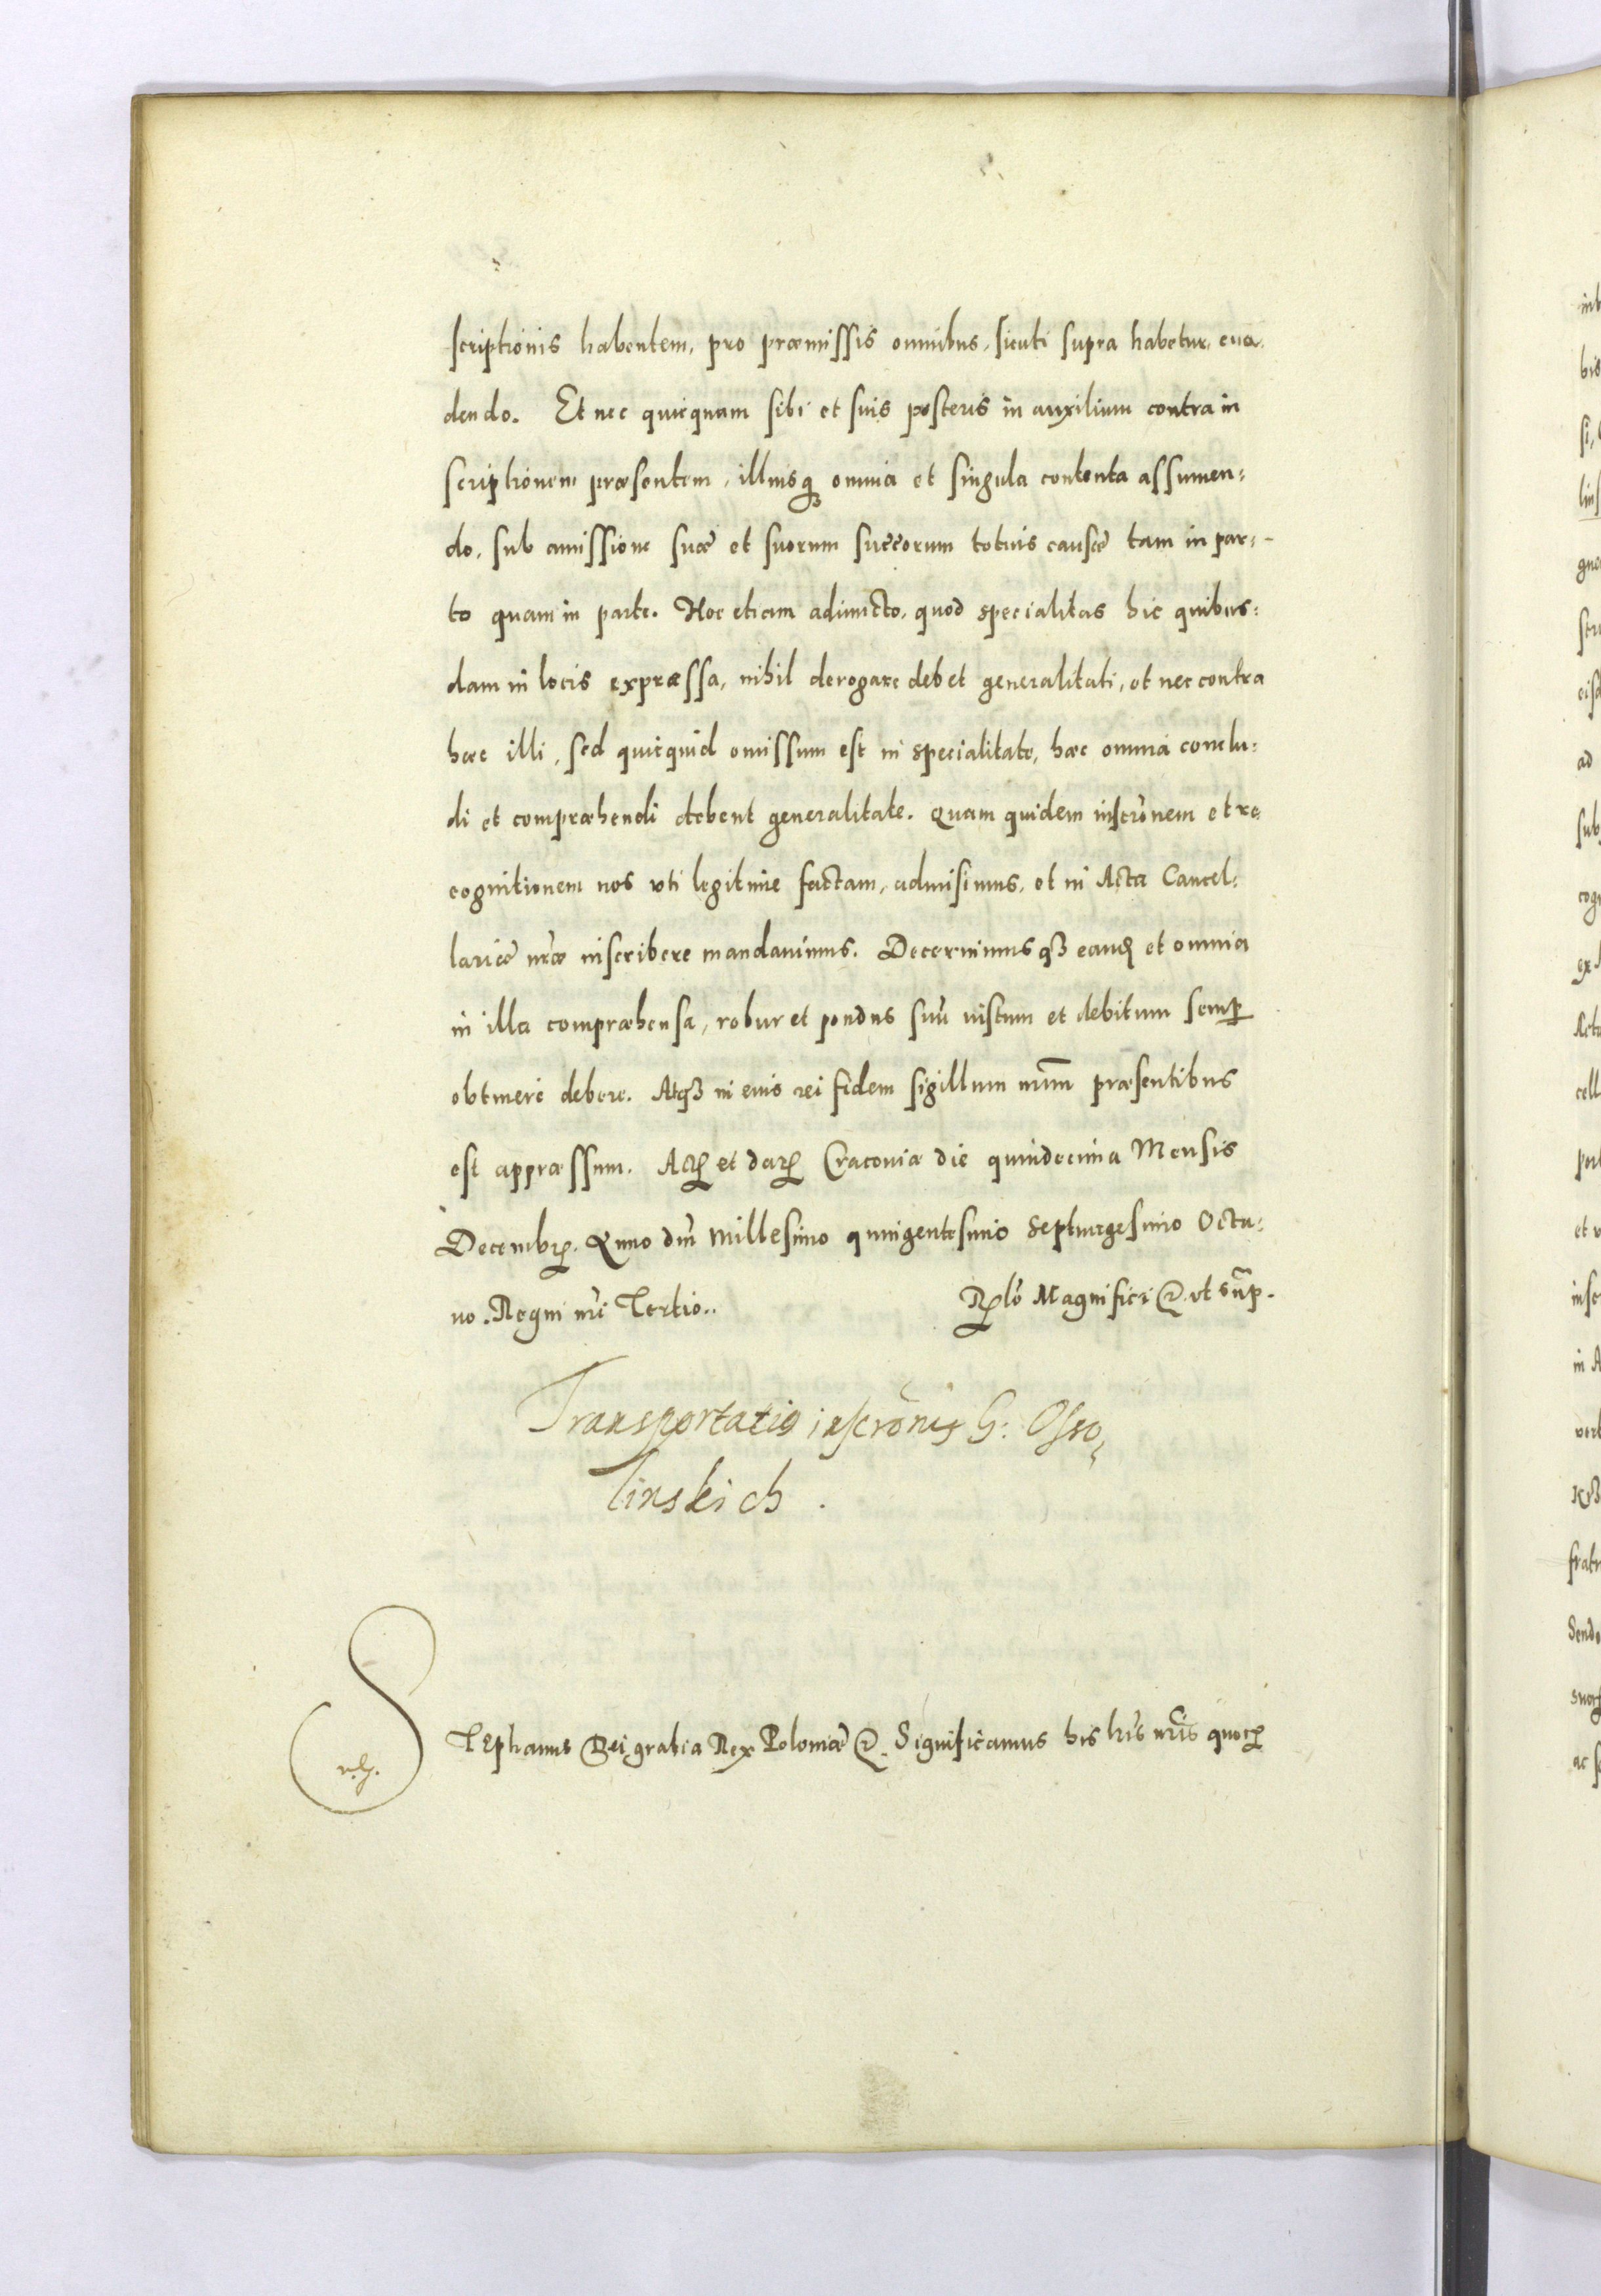 scriptionis habentem, pro præmissis omnibus, sicuti supra habetur, eua-
dendo. Et nec quicquam sibi et suis posteris in auxilium contra in
scriptionem præsentem, illiusq3 omnia et singula contenta assumen:
do, sub amissione suæ et suorum succorum totius causæ tam in par:-
to quam in parte. Hoc etiam adiuncto, quod specialitas hic quibus:
dam in locis expræssa, nihil derogare debet generalitati, et nec contra
hæc illi, sed quicquid omissum est in specialitate, hæc omnia conclu:
di et compræhendi debent generalitate. Quam quidem inscrõnem et re-
cognitionem nos vti legitime factam, admisimus, et in Acta Cancel:
lariæ nr̃æ inscribere mandauimus. Decernimusq3 eand et omnia
in illa compræhensa, robur et pondus suũ iustum et debitum semp
obtinere debere. Atq3 in eius rei fidem sigillum nr̃um præsentibus
est appræssum. Act et dat Cracouiæ die quindecima Mensis
Decembr. Anno dñi Millesimo quingentesimo Septuagesimo Octa:
uo. Regni nr̃i Tertio.. Relõ Magnifici &. vt sup.
Transportatio inscrõnis G: Osso,
linskich.
STEphanus Dei gratia Rex Poloniæ &. Significamus his lr̃is nr̃is quor